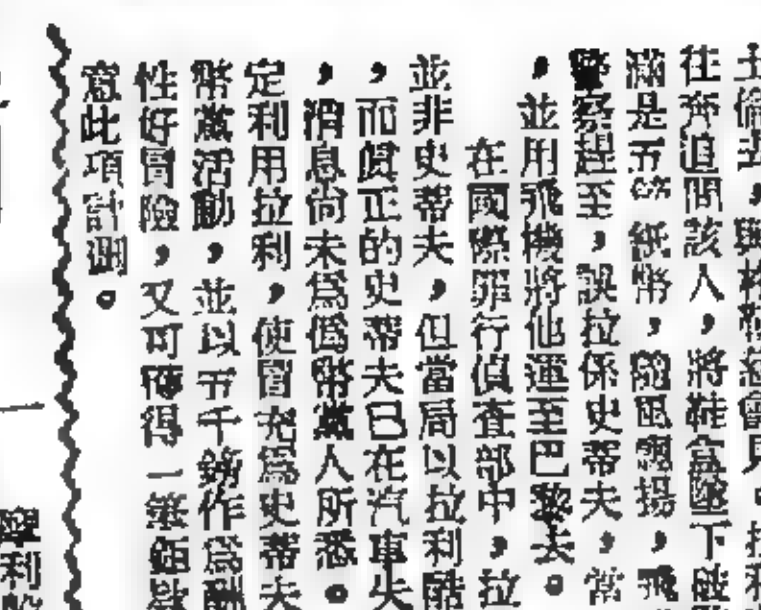 往奔追問該人，將鞋盒墮下破
滿是五磅紙幣，隨風飄揚，飛
警察趕至，誤拉係史蒂夫，當
，並用飛機將他運至巴黎去。
在國際罪行偵查部中，拉
並非史蒂夫，但當局以拉利酷
，而真正的史蒂夫已在汽車失
，消息尚未為偽幣黨人所悉。
定利用拉利，使冒充為史蒂夫
幣黨活動，並以五千鎊作為酬
性好冒險，又可獲得一筆鉅款
意此項計劃。
摩利